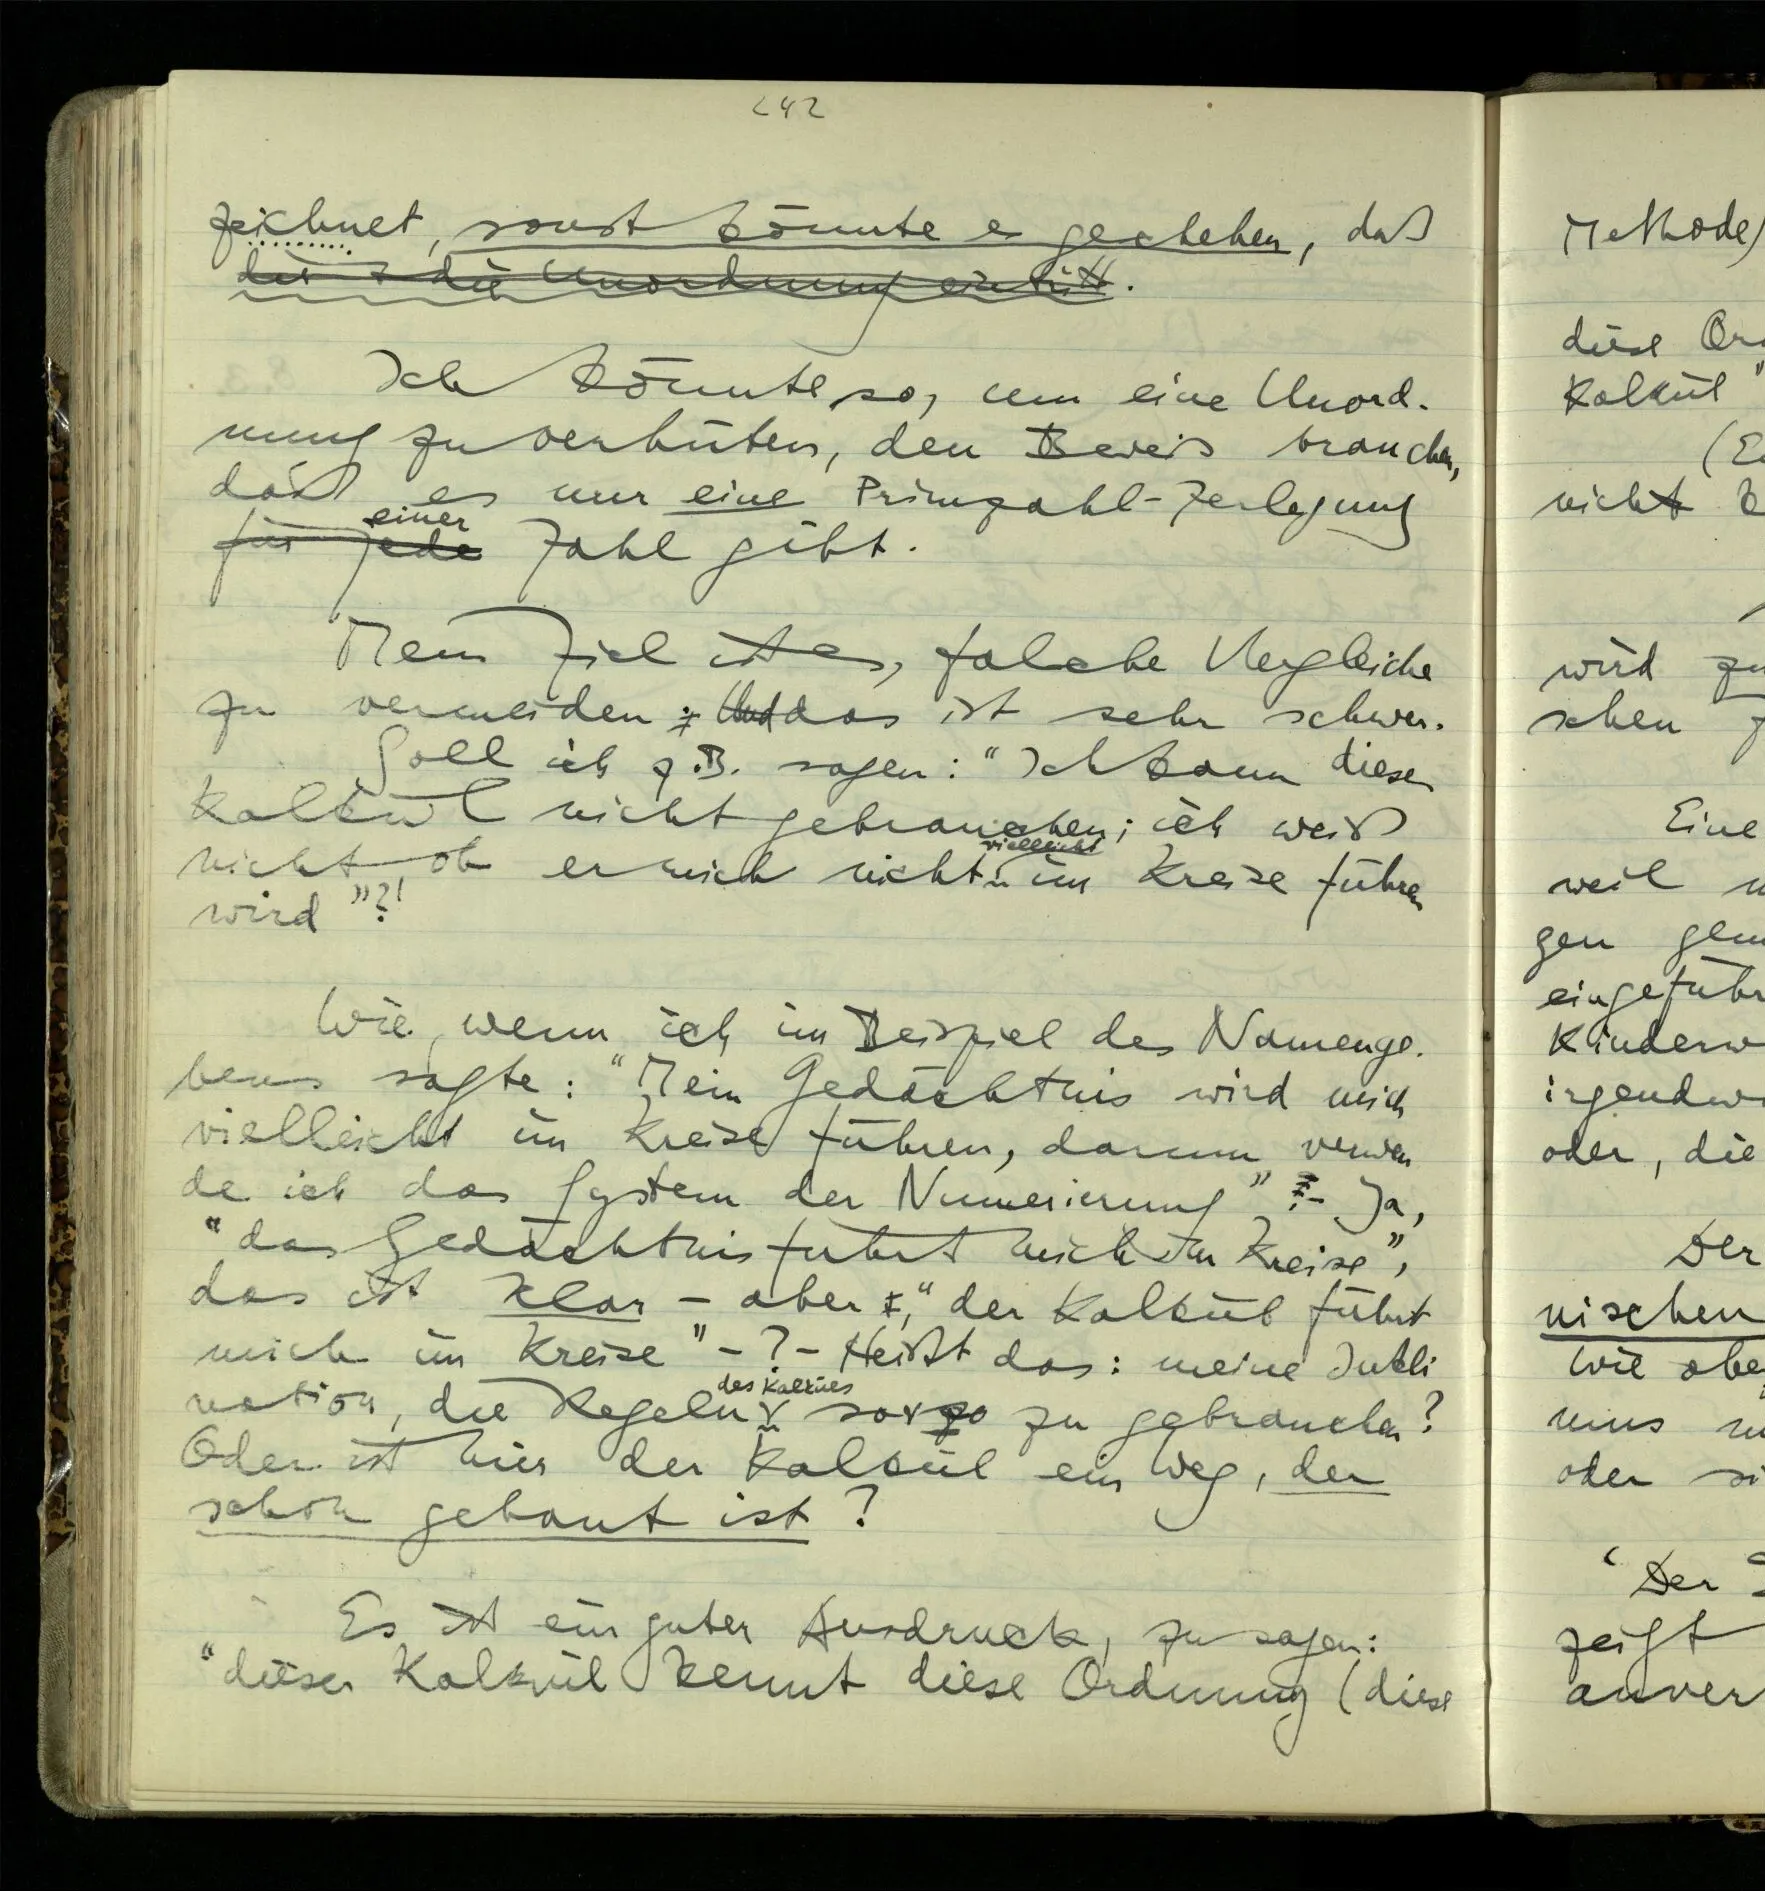 242
zeichnet, sonst könnte es geschehen, daß
die Unordnung eintritt.
Ich könnte so, um eine Unord-
nung zu verhüten, den Beweis brauchen,
daß es nur eine Primzahl-Zerlegung
einer
für jede Zahl gibt.
Mein Ziel ist es, falsche Vergleiche
zu vermeiden; Und das ist sehr schwer.
Soll ich z.B. sagen: "Ich kann diesen
Kalkül nicht gebrauchen; ich weiß
vielleicht
nicht ob er mich nicht im Kreise führen
wird"?!
Wie, wenn ich im Beispiel des Namenge-
bens sagte: "Mein Gedächtnis wird mich
vielleicht im Kreise führen, darum verwen
de ich das System der Numerierung" - Ja,
"das Gedächtnis führt mich im Kreise",
das ist klar - aber, "der Kalkül führt
mich im Kreise" - ? - Heißt das: meine Inkli
des Kalküls
nation, die Regeln so zu gebrauchen?
Oder ist hier der Kalkül ein Weg, der
schon gebaut ist?
Es ist ein guter Ausdruck, zu sagen:
"dieser Kalkül kennt diese Ordnung (diese
Methode)
diese
Kalkül"
nicht
wird
schen
Eine
weil
gen
oder, die
Der
nischen
Wie
uns
oder
"Der
zeigt